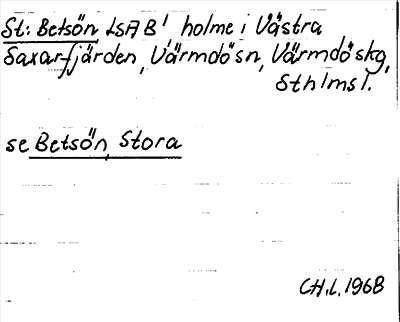 St: Betsön LSAB' holme i Västra
Saxarfjärden, Värmdö sn, Värmdö skg,
Sthlms l.
se Betsön, Stora
CH.L. 1968